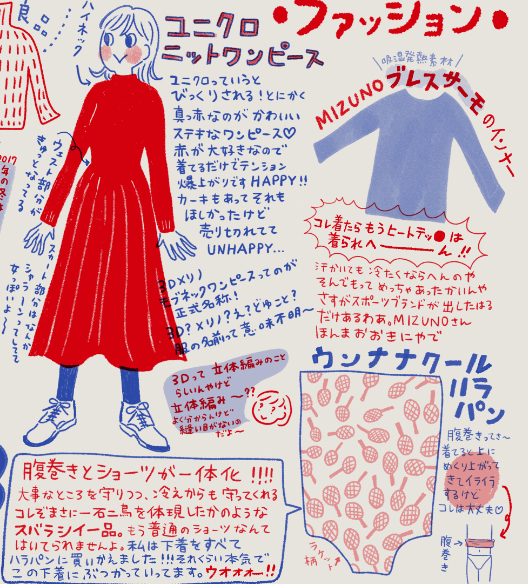 ●ファッション●
良品……
ハイネック
ユニクロ
ニットワンピース
ユニクロっていうと
びっくりされる!とにかく
真っ赤なのが かわいい
ステキなワンピース♡
赤が大好きなので
着てるだけでテンション
爆上がりです HAPPY!!
カーキもあって それも
ほしかったけど
売りきれてて
UNHAPPY...
ウェスト部分が
きゅっとなってる
2017
年の冬は
スカート部分はなんか
シャラーンってしてて
女っぽいよ〜
3Dメリノ
モブネックワンピースってのが
正式名称!
3D?メリノ?え?どゆこと?
服の名前って意味不明〜
3Dって 立体編みのこと
らしいんやけど
立体編み〜??
よく分からんけど
縫い目がないの
だよ〜
吸湿発熱素材
MIZUNO ブレスサーモのインナー
コレ着たら もうヒートテッ●は
着られへーーーん!!
汗かいても 冷たくならへんのや
そんでもって めっちゃあったかいんや
さすがスポーツブランドが出したはる
だけあるわあ。MIZUNOさん
ほんま おおきにやで
ウンナナクール
ハラ
パン
腹巻きってさ〜
着てると上に
めくり上がって
きてイライラ
するけど
コレは大丈夫♡
腹巻き
ラケット
柄
腹巻きとショーツが一体化 !!!!
大事なところを守りつつ、冷えからも守ってくれる
コレぞまさに一石二鳥を体現したかのような
スバラシイ一品。もう普通のショーツなんて
はいてられませんよ。私は下着をすべて
ハラパンに買いかえました!!!それくらい本気で
この下着にぶつかっていってます。ウオォォー!!